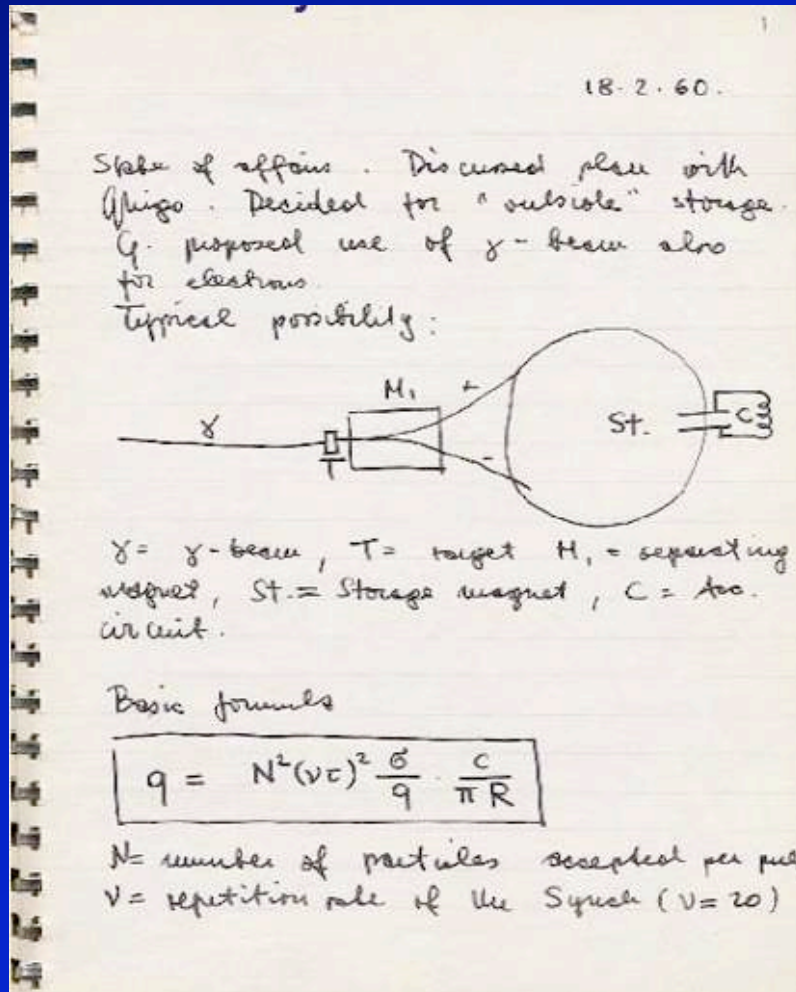 1
18.2.60.
State of affairs. Discussed plan with
Ghigo. Decided for "outside" storage.
G. proposed use of γ-beam also
for electrons.
Typical possibility:
M₁
+
γ
St.
C
-
T
γ = γ-beam, T = target M₁ = separating
magnet, St. = Storage magnet, C = Acc.
circuit.
Basic formula
q = N²(ντ)² σ/q · c/πR
N = number of particles accepted per pul
ν = repetition rate of the Synch (ν = 20)